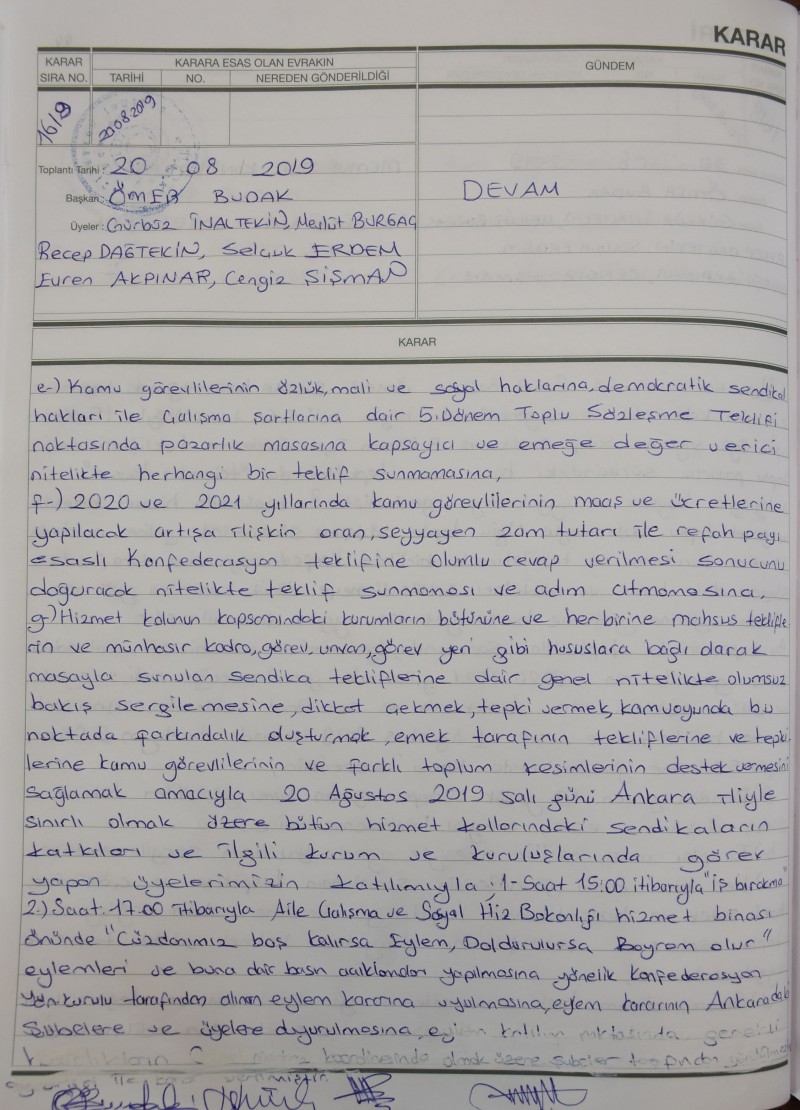 KARAR
KARAR SIRA NO.
KARARA ESAS OLAN EVRAKIN
TARİHİ NO. NEREDEN GÖNDERİLDİĞİ
GÜNDEM
16/9
20.08.2019
Toplantı Tarihi: 20 08 2019
Başkan: ÖMER BUDAK
Üyeler: Gürbüz İNALTEKİN, Mevlüt BURGAÇ
Recep DAĞTEKİN, Selçuk ERDEM
Evren AKPINAR, Cengiz ŞİŞMAN
DEVAM
KARAR
e-) Kamu görevlilerinin özlük, mali ve sosyal haklarına, demokratik sendikal
hakları ile Çalışma Şartlarına dair 5. Dönem Toplu Sözleşme Teklifi
noktasında pazarlık masasına kapsayıcı ve emeğe değer verici
nitelikte herhangi bir teklif sunmamasına,
f-) 2020 ve 2021 yıllarında kamu görevlilerinin maaş ve ücretlerine
yapılacak artışa ilişkin oran, seyyayen zam tutarı ile refah payı
esaslı Konfederasyon teklifine olumlu cevap verilmesi sonucunu
doğuracak nitelikte teklif sunmaması ve adım atmamasına,
g-) Hizmet kolunun kapsamındaki kurumların bütününe ve her birine mahsus teklifle
rin ve münhasır kadro, görev, unvan, görev yeri gibi hususlara bağlı olarak
masayla sunulan sendika tekliflerine dair genel nitelikte olumsuz
bakış sergilemesine, dikkat çekmek, tepki vermek, kamuoyunda bu
noktada farkındalık oluşturmak, emek tarafının tekliflerine ve tepki-
lerine kamu görevlilerinin ve farklı toplum kesimlerinin destek vermesini
sağlamak amacıyla 20 Ağustos 2019 salı günü Ankara iliyle
sınırlı olmak üzere bütün hizmet kollarındaki sendikaların
katkıları ve ilgili kurum ve kuruluşlarında görev
yapan üyelerimizin katılımıyla; 1-Saat 15:00 itibarıyla "iş bırakma"
2.) Saat 17.00 itibarıyla Aile Çalışma ve Sosyal Hiz Bakanlığı hizmet binası
önünde "Cüzdanımız boş kalırsa Eylem, Doldurulursa Bayram olur"
eylemleri ve buna dair basın açıklamaları yapılmasına yönelik konfederasyon
Yön. kurulu tarafından alınan eylem kararına uyulmasına, eylem kararının Ankaradaki
Şubelere ve üyelere duyurulmasına, eylem katılım noktasında gerekli
koordinesinde olmak üzere şubeler tarafından
ile karar verilmiştir.